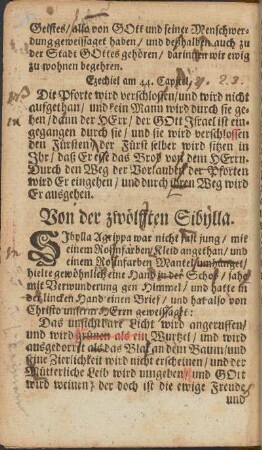 Geistes/ also von GOtt und seiner Menschwer-
dung geweissaget haben/ und deßhalben auch zu
der Stadt GOttes gehören/ darinnen wir ewig
zu wohnen begehren.
Ezechiel am 44. Capitel, v. 2. 3.
Die Pforte wird verschlossen/ und wird nicht
aufgethan/ und kein Mann wird durch sie ge-
hen/ dann der HErr/ der GOtt Israel ist ein-
gegangen durch sie/ und sie wird verschlossen
den Fürsten/ der Fürst selber wird sitzen in
Ihr/ daß Er esse das Brod von dem HErrn.
Durch den Weg der Vorlauben der Pforten
wird Er eingehen/ und durch ihren Weg wird
Er ausgehen.
Von der zwölfften Sibylla.
SIbylla Agrippa war nicht fast jung/ mit
einem Rosinfarben Kleid angethan/ und
einem Rosinfarben Mantel
hielte gewöhnlich eine Hand in der Schoß/ sahe
mit Verwunderung gen Himmel/ und hatte in
der lincken Hand einen Brief/ und hat also von
Christo unserm HErrn geweissaget:
Das unsichtbare Licht wird angeruffen/
und wird grünen als ein Wurtzel/ und wird
ausgedorret als das Blat an dem Baum/ und
seine Zierlichkeit wird nicht erscheinen/ und der
Mütterliche Leib wird umgeben/ und GOtt
wird weinen/ der doch ist die ewige Freude/
und